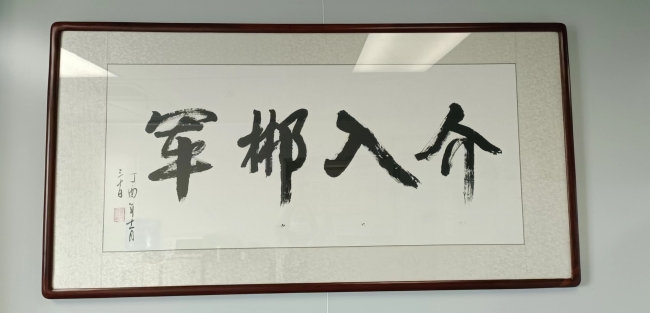 介入郴军
丁酉年十一月
三十日